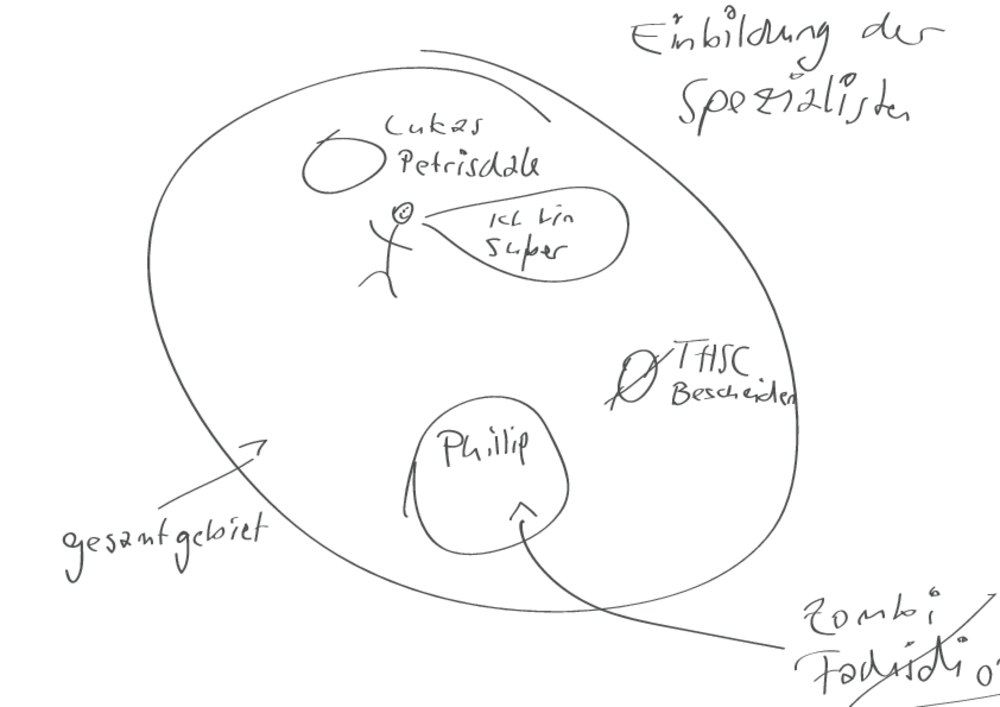 Einbildung der
Spezialisten
Lukas
Petrisdale
Ich bin
super
THSC
Bescheiden
Phillip
gesamtgebiet
Zombi